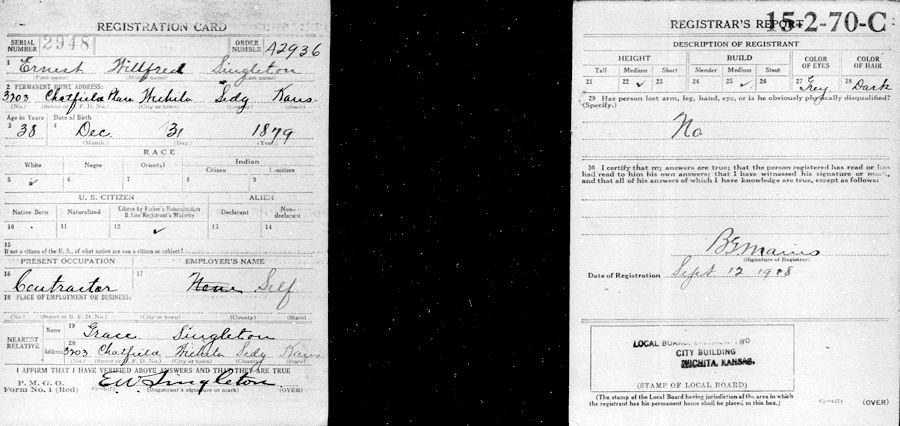 REGISTRATION CARD
SERIAL NUMBER 2948 ORDER NUMBER A2936
1 Ernest Willfred Singleton
(First name) (Middle name) (Last name)
2 PERMANENT HOME ADDRESS:
3703 Chatfield Place Wichita Sedg Kans.
(No.) (Street or R. F. D. No.) (City or town) (County) (State)
Age in Years Date of Birth
3 38 4 Dec. 31 1879
(Month.) (Day.) (Year.)
RACE
White Negro Oriental Indian
Citizen Noncitizen
5 ✓ 6 7 8 9
U. S. CITIZEN ALIEN
Native Born Naturalized Citizen by Father's Naturalization Before Registrant's Majority Declarant Non-declarant
10 11 12 ✓ 13 14
15
If not a citizen of the U. S., of what nation are you a citizen or subject?
PRESENT OCCUPATION EMPLOYER'S NAME
16 Contractor 17 None Self
18 PLACE OF EMPLOYMENT OR BUSINESS:
(No.) (Street or R. F. D. No.) (City or town) (County) (State)
NEAREST RELATIVE Name 19 Grace Singleton
Address 20 3703 Chatfield Wichita Sedg Kans
(No.) (Street or R. F. D. No.) (City or town) (County) (State)
I AFFIRM THAT I HAVE VERIFIED ABOVE ANSWERS AND THAT THEY ARE TRUE
P. M. G. O.
Form No. 1 (Red) E.W. Singleton
(Registrant's signature or mark) (OVER)
REGISTRAR'S REPORT 15-2-70-C
DESCRIPTION OF REGISTRANT
HEIGHT BUILD COLOR OF EYES COLOR OF HAIR
Tall Medium Short Slender Medium Stout
21 22 ✓ 23 24 25 ✓ 26 27 Grey 28 Dark
29 Has person lost arm, leg, hand, eye, or is he obviously physically disqualified?
(Specify.)
No
30 I certify that my answers are true; that the person registered has read or has
had read to him his own answers; that I have witnessed his signature or mark,
and that all of his answers of which I have knowledge are true, except as follows:
(Signature of Registrar)
Date of Registration Sept 12 1918
LOCAL BOARD, DIVISION TWO
CITY BUILDING
WICHITA, KANSAS.
(STAMP OF LOCAL BOARD)
(The stamp of the Local Board having jurisdiction of the area in which
the registrant has his permanent home shall be placed in this box.)
(OVER)